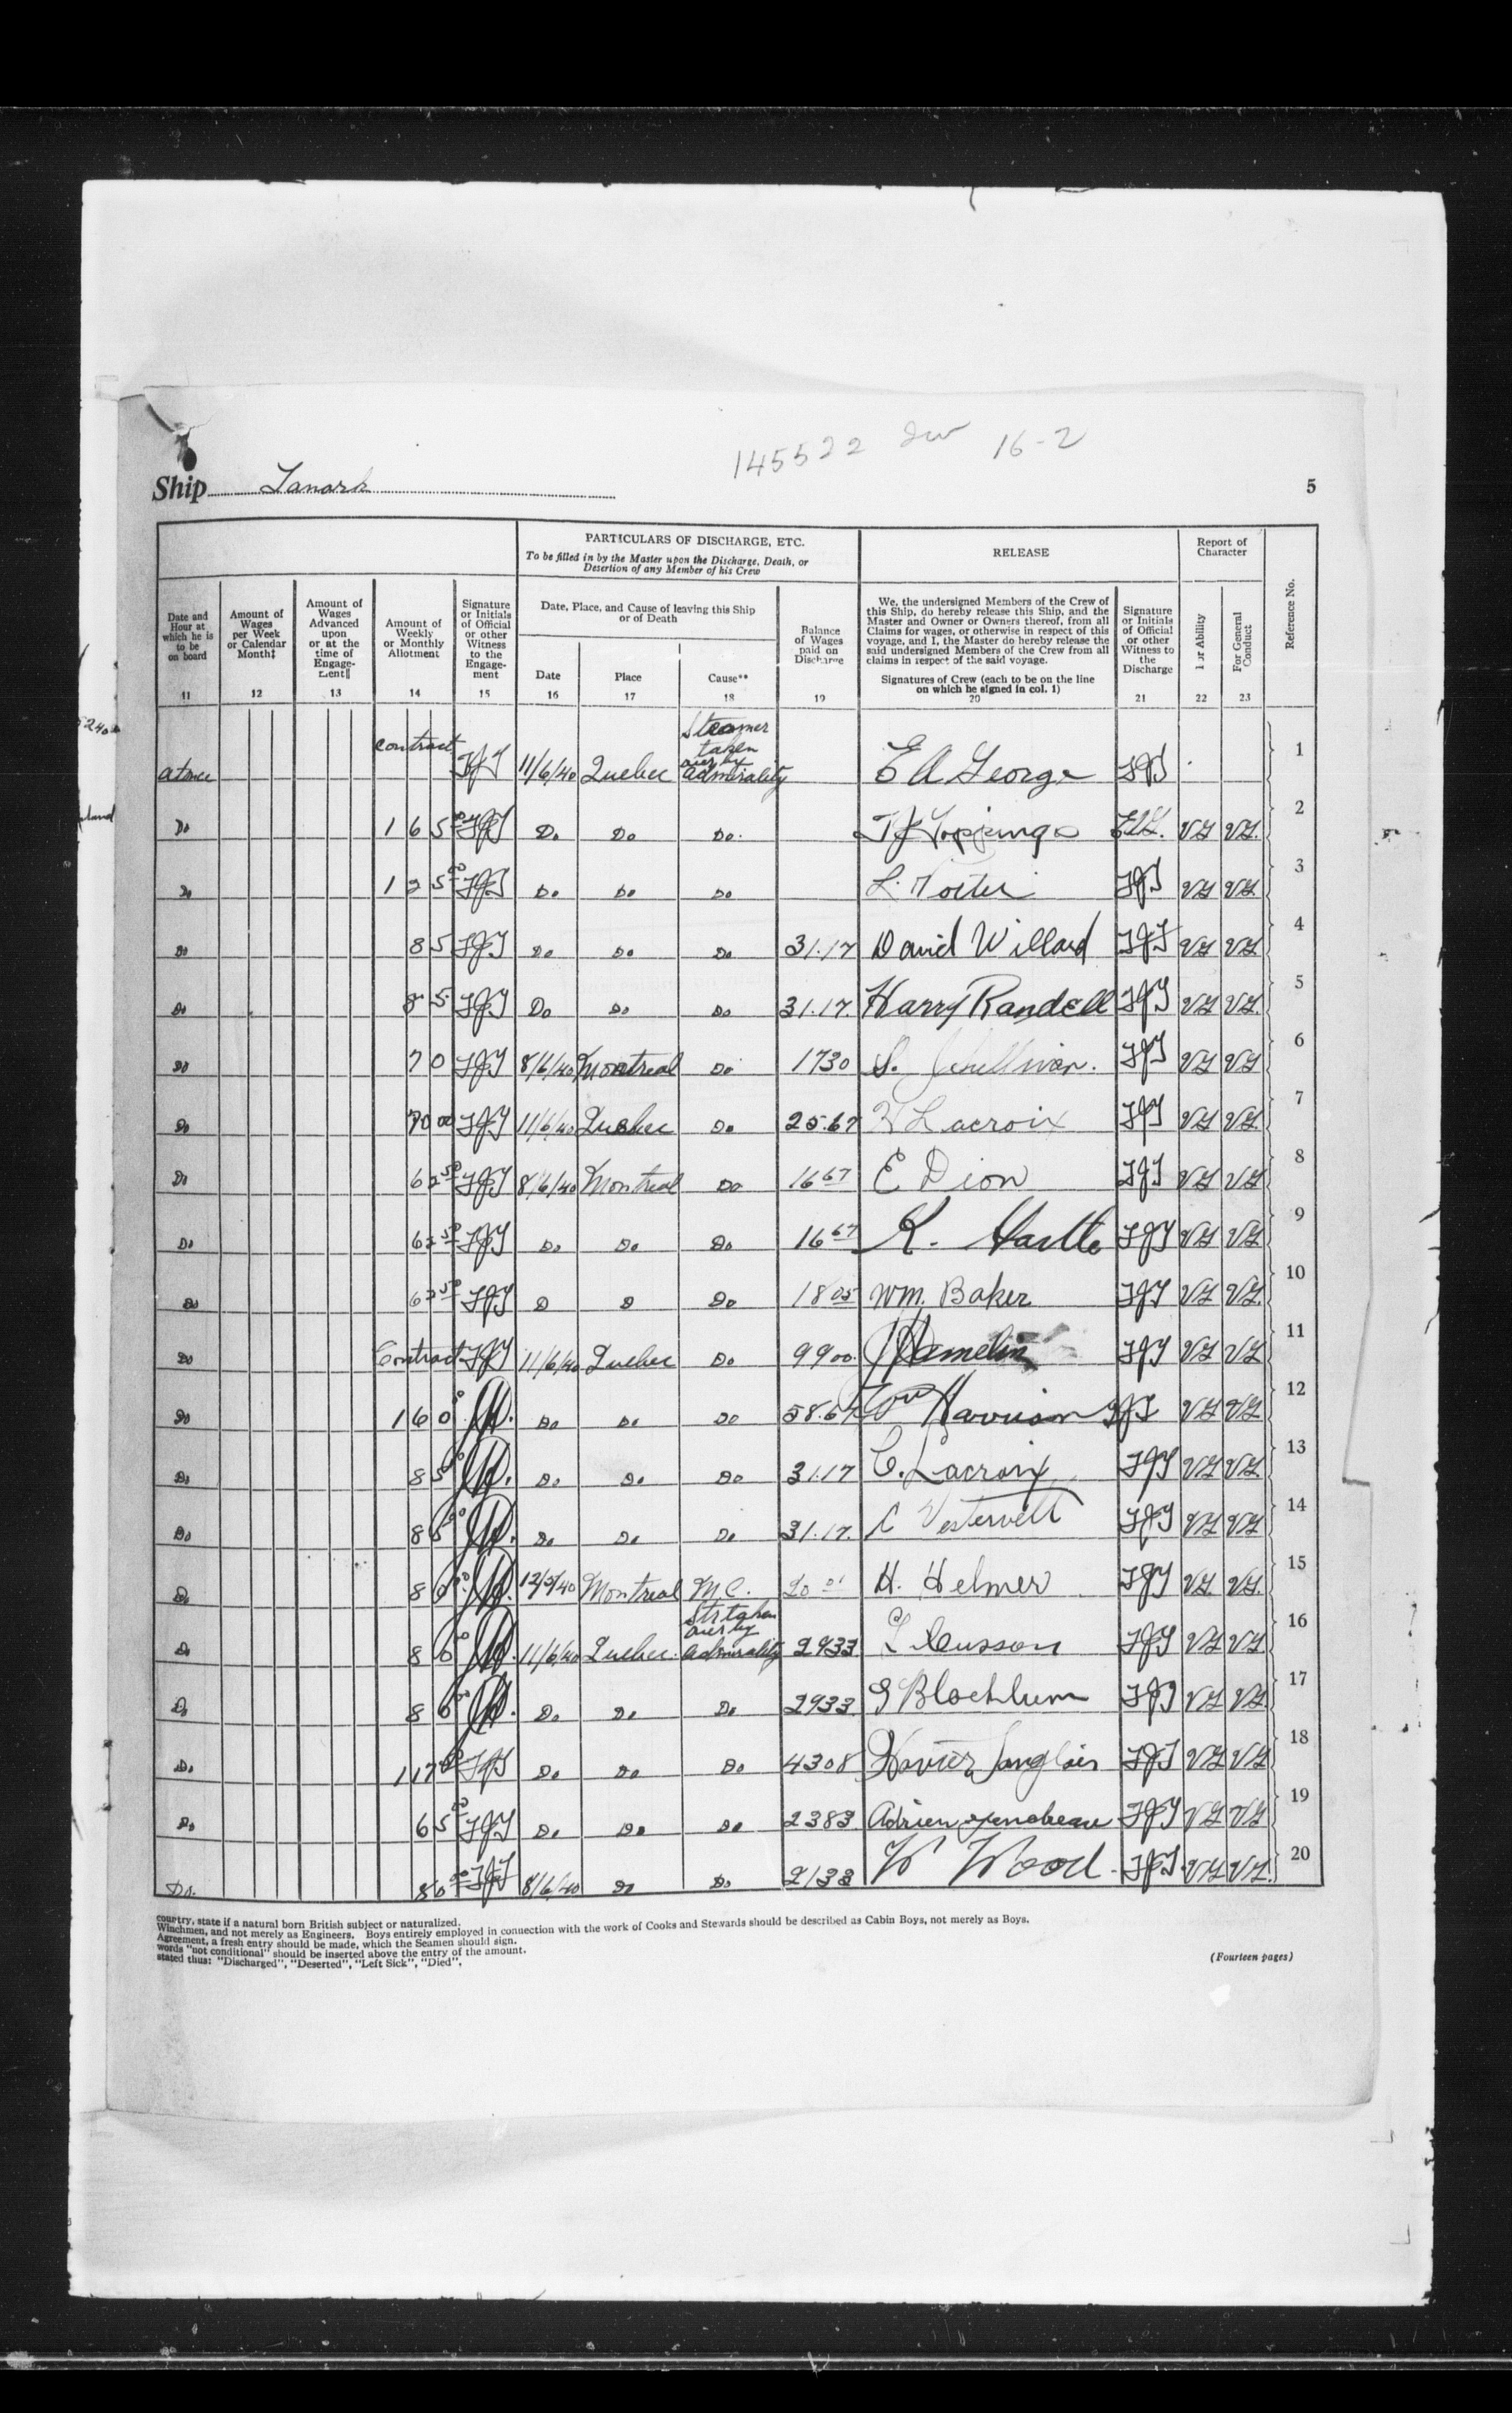 145522 16-2
Ship Lanark 5
PARTICULARS OF DISCHARGE, ETC.
To be filled in by the Master upon the Discharge, Death, or
Desertion of any Member of his Crew
RELEASE
Report of
Character
Reference No.
Date and
Hour at
which he is
to be
on board
11
Amount of
Wages
per Week
or Calendar
Month‡
12
Amount of
Wages
Advanced
upon
or at the
time of
Engage-
ment‖
13
Amount of
Weekly
or Monthly
Allotment
14
Signature
or Initials
of Official
or other
Witness
to the
Engage-
ment
15
Date, Place, and Cause of leaving this Ship
or of Death
Date
16
Place
17
Cause**
18
Balance
of Wages
paid on
Discharge
19
We, the undersigned Members of the Crew of
this Ship, do hereby release this Ship, and the
Master and Owner or Owners thereof, from all
Claims for wages, or otherwise in respect of this
voyage, and I, the Master do hereby release the
said undersigned Members of the Crew from all
claims in respect of the said voyage.
Signatures of Crew (each to be on the line
on which he signed in col. 1)
20
Signature
or Initials
of Official
or other
Witness to
the
Discharge
21
For Ability
22
For General
Conduct
23
at once contract TJT 11/6/40 Quebec Steamer taken over by admirality E A George TJT 1
Do 165 00 TJT Do Do Do T J Toppings EAG. VG VG. 2
Do 125 00 TJT Do Do Do L. TJT VG VG 3
Do 85 TJT Do Do Do 31.17 David Willard TJT VG VG 4
Do 85 TJT Do Do Do 31.17. Harry Randell TJT VG VG. 5
Do 70 TJT 8/6/40 Montreal Do 1730 S. Sullivan. TJT VG VG 6
Do 70 00 TJT 11/6/40 Quebec Do 25.67 H Lacroix TJT VG VG. 7
Do 62 50 TJT 8/6/40 Montreal Do 16 67 E Dion TJT VG VG 8
Do 62 50 TJT Do Do Do 16 67 K. TJT VG VG 9
Do 62 50 TJT D D Do 18 05 Wm. Baker TJT VG VG. 10
Do Contract TJT 11/6/40 Quebec Do 99 00. J Hamelin TJT VG VG 11
Do 160 Do Do Do 58.67 Wm Harrison TJT VG VG 12
Do 85 Do Do Do 31.17 C. Lacroix TJT VG VG. 13
Do 85 Do Do Do 31.17. C Westervelt TJT VG VG 14
Do 80 12/5/40 Montreal M.C. H. Helmer TJT VG VG. 15
Do 80 11/6/40 Quebec. Str taken over by admirality 2933 L Cusson TJT VG VG 16
Do 80 Do Do Do 2933 G Blackburn TJT VG VG. 17
Do 117 TJT Do Do Do 4308 Xavier Langlois TJT VG VG. 18
Do 65 00 TJT Do Do Do 2383 Adrien TJT VG VG 19
Do. 80 TJT 8/6/40 Do Do 2133 W Wood. TJT VG VG. 20
country, state if a natural born British subject or naturalized.
Winchmen, and not merely as Engineers. Boys entirely employed in connection with the work of Cooks and Stewards should be described as Cabin Boys, not merely as Boys.
Agreement, a fresh entry should be made, which the Seamen should sign.
words "not conditional" should be inserted above the entry of the amount.
stated thus: "Discharged", "Deserted", "Left Sick", "Died".
(Fourteen pages)